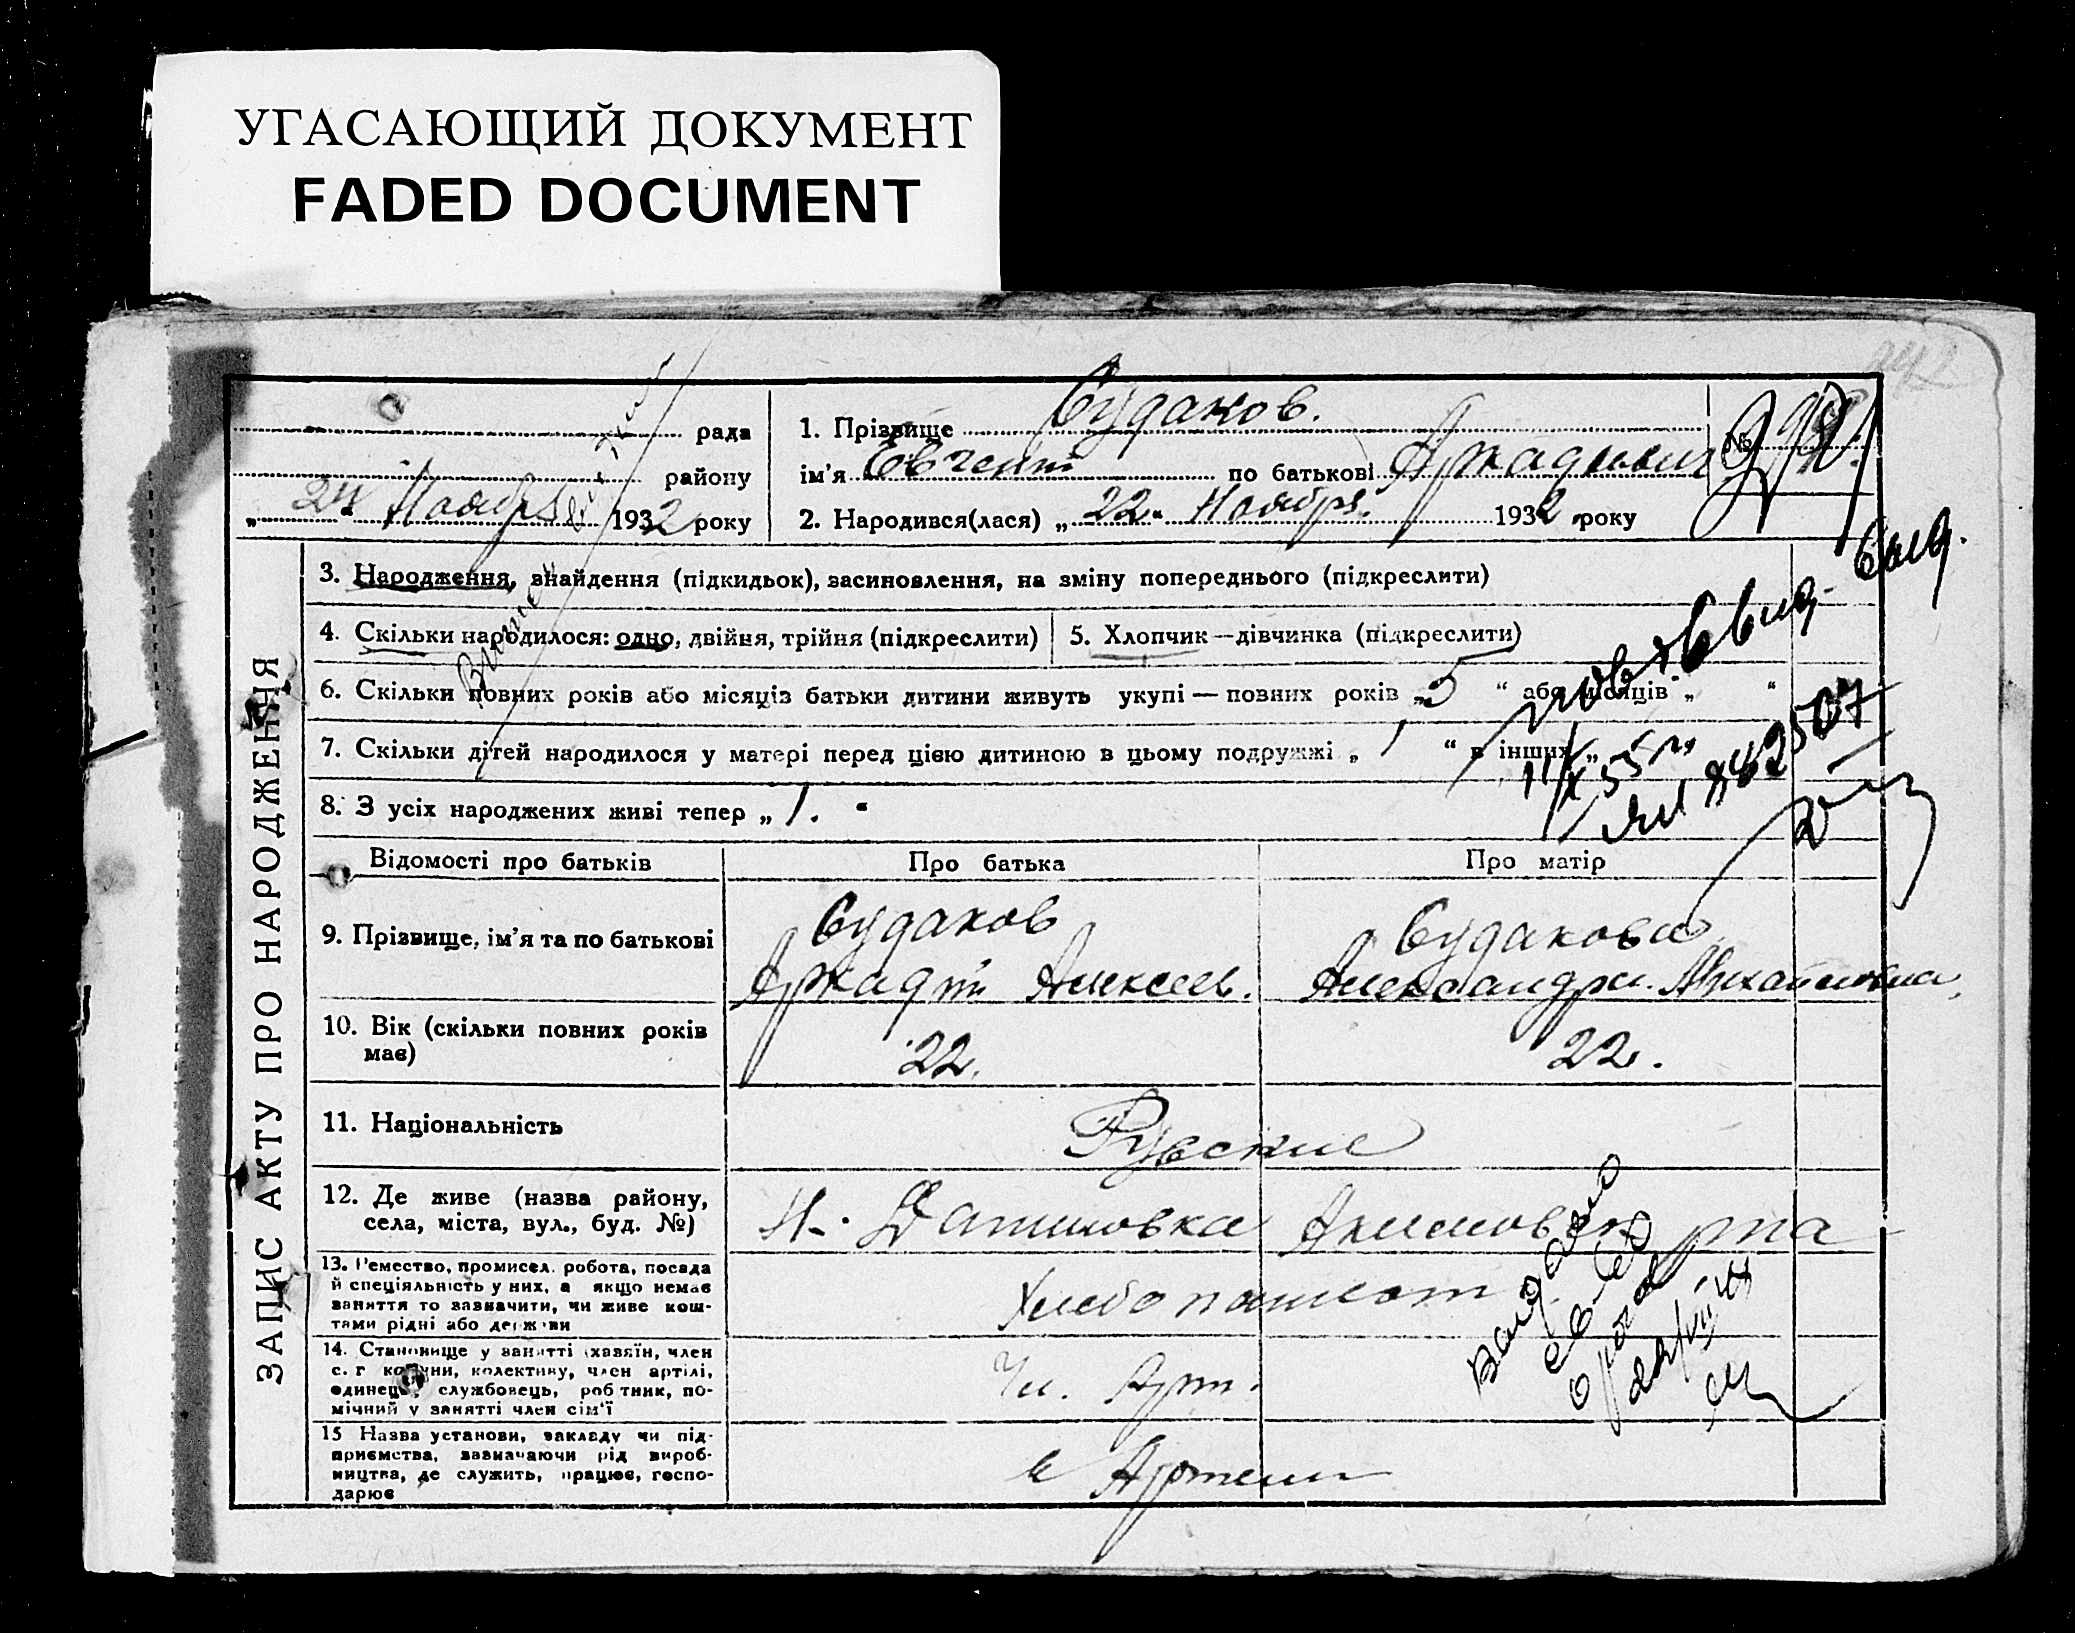 УГАСАЮЩИЙ ДОКУМЕНТ
FADED DOCUMENT
242
рада
району
„24 Ноября 1932 року
1. Прізвище Судаков.
ім'я Евгений по батькові Аркадьевич
2. Народився(лася) „22“ Ноября 1932 року
№
ЗАПИС АКТУ ПРО НАРОДЖЕННЯ
3. Народження, знайдення (підкидьок), засиновлення, на зміну попереднього (підкреслити)
4. Скільки народилося: одно, двійня, трійня (підкреслити)
5. Хлопчик — дівчинка (підкреслити)
6. Скільки повних років або місяців батьки дитини живуть укупі — повних років „5“ або місяців „ “
7. Скільки дітей народилося у матері перед цією дитиною в цьому подружжі „1“ в інших „
8. З усіх народжених живі тепер „1.“
Відомості про батьків
Про батька
Про матір
9. Прізвище, ім'я та по батькові
Судаков
Аркадий Алексеев.
Судакова
Александра Михайловна.
10. Вік (скільки повних років
має)
22.
22.
11. Національність
Русские
12. Де живе (назва району,
села, міста, вул., буд. №)
Н. Даниловка Акимовск р-на
13. Ремество, промисел. робота, посада
й спеціяльність у них, а якщо немає
заняття то зазначити, чи живе кош-
тами рідні або держави
Хлебопашест
14. Становище у занятті (хазяїн, член
с. г комуни, колективу, член артілі,
одинець, службовець, робітник, по-
мічний у занятті член сім'ї
Чл. Арт.
15 Назва установи, закладу чи під-
приємства, зазначаючи рід вироб-
ництва, де служить, працює, госпо-
дарює
в Артели